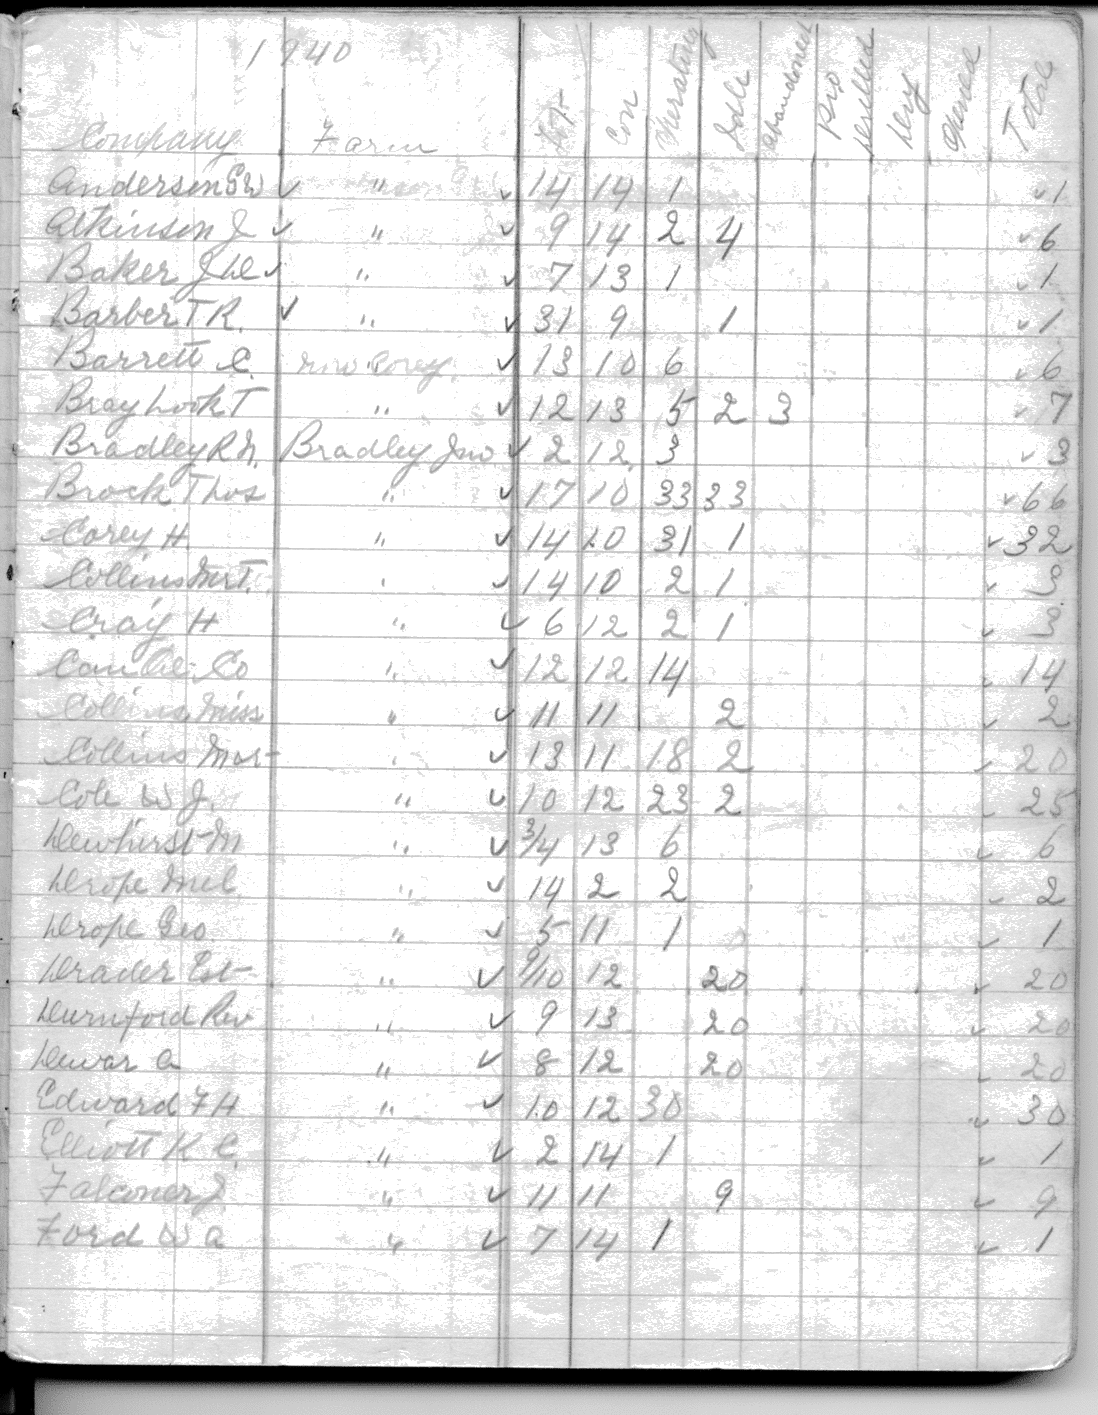 1940
Company Farm Lot Con Operating Idle Abandoned Pro Drilled Dry Opened Total
Anderson ✓ " ✓ 14 14 1 ✓ 1
Atkinson J ✓ " ✓ 9 14 2 4 ✓ 6
Baker J ✓ " ✓ 7 13 1 ✓ 1
Barber T R. ✓ " ✓ 31 9 1 ✓ 1
Barrett C. Corey ✓ 13 10 6 ✓ 6
Bray Look T " ✓ 12 13 5 2 3 ✓ 7
Bradley R N. Bradley Jno ✓ 2 12 3 ✓ 3
Brock Thos " ✓ 17 10 33 33 ✓ 66
Corey H. " ✓ 14 10 31 1 ✓ 32
Collins " ✓ 14 10 2 1 ✓ 3
Cray H " ✓ 6 12 2 1 ✓ 3
Can Oil Co " ✓ 12 12 14 ✓ 14
Collins Miss " ✓ 11 11 2 ✓ 2
Collins " ✓ 13 11 18 2 ✓ 20
Cole W J. " ✓ 10 12 23 2 ✓ 25
Dewhirst M " ✓ 3/4 13 6 ✓ 6
Drope Mel " ✓ 14 2 2 ✓ 2
Drope Geo. " ✓ 5 11 1 ✓ 1
Drader Est " ✓ 9/10 12 20 ✓ 20
Durnford " ✓ 9 13 20 ✓ 20
Dewar A " ✓ 8 12 20 ✓ 20
Edward F H " ✓ 10 12 30 ✓ 30
Elliott K C. " ✓ 2 14 1 ✓ 1
Falconer J " ✓ 11 11 9 ✓ 9
Ford W A " ✓ 7 14 1 ✓ 1